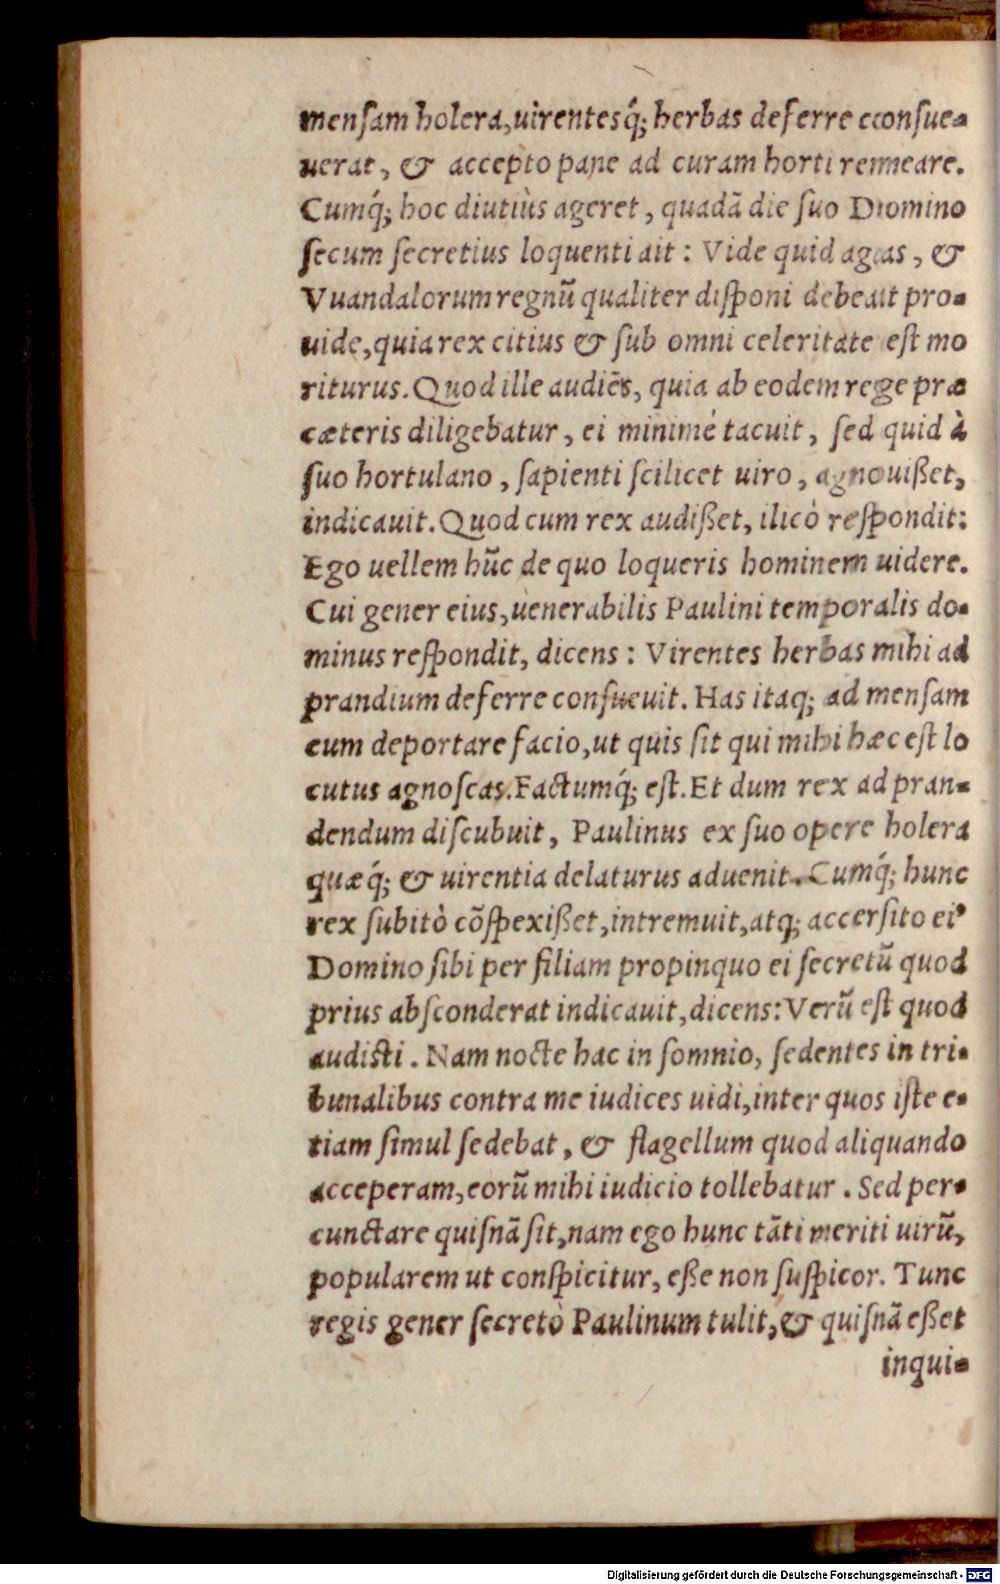 menſam holera,uirentesq́; herbas deferre cconſue-
uerat, & accepto pane ad curam horti remmeare.
Cumq́; hoc diutiùs ageret, quadã die ſuo Domino
ſecum ſecretius loquenti ait: Vide quid agas, &
Vuandalorum regnũ qualiter diſponi debeatt pro-
uide,quia rex citius & ſub omni celeritate eſt mo
riturus. Quod ille audiẽs, quia ab eodem rege præ
cæteris diligebatur, ei minimé tacuit, ſed quid à
ſuo hortulano, ſapienti ſcilicet uiro, agnouißet,
indicauit. Quod cum rex audißet, ilicò reſpondit:
Ego uellem hũc de quo loqueris hominem uidere.
Cui gener eius,uenerabilis Paulini temporalis do-
minus reſpondit, dicens: Virentes herbas mihi ad
prandium deferre conſueuit. Has itaq; ad menſam
eum deportare facio,ut quis ſit qui mihi hæc eſt lo
cutus agnoſcas.Factumq́; eſt.Et dum rex ad pran-
dendum diſcubuit, Paulinus ex ſuo opere holera
quæq́; & uirentia delaturus aduenit. Cumq́; hunc
rex ſubitò cõſpexißet,intremuit,atq; accerſito ei⁹
Domino ſibi per filiam propinquo ei ſecretũ quod
prius abſconderat indicauit,dicens:Verũ eſt quod
audiſti. Nam nocte hac in ſomnio, ſedentes in tri-
bunalibus contra me iudices uidi,inter quos iſte e-
tiam ſimul ſedebat, & flagellum quod aliquando
acceperam,eorũ mihi iudicio tollebatur. Sed per-
cunctare quiſnã ſit,nam ego hunc tãti meriti uirũ,
popularem ut conſpicitur, eße non ſuſpicor. Tunc
regis gener ſecretò Paulinum tulit,& quiſnã eßet
inqui-
Digitalisierung gefördert durch die Deutsche Forschungsgemeinschaft - DFG